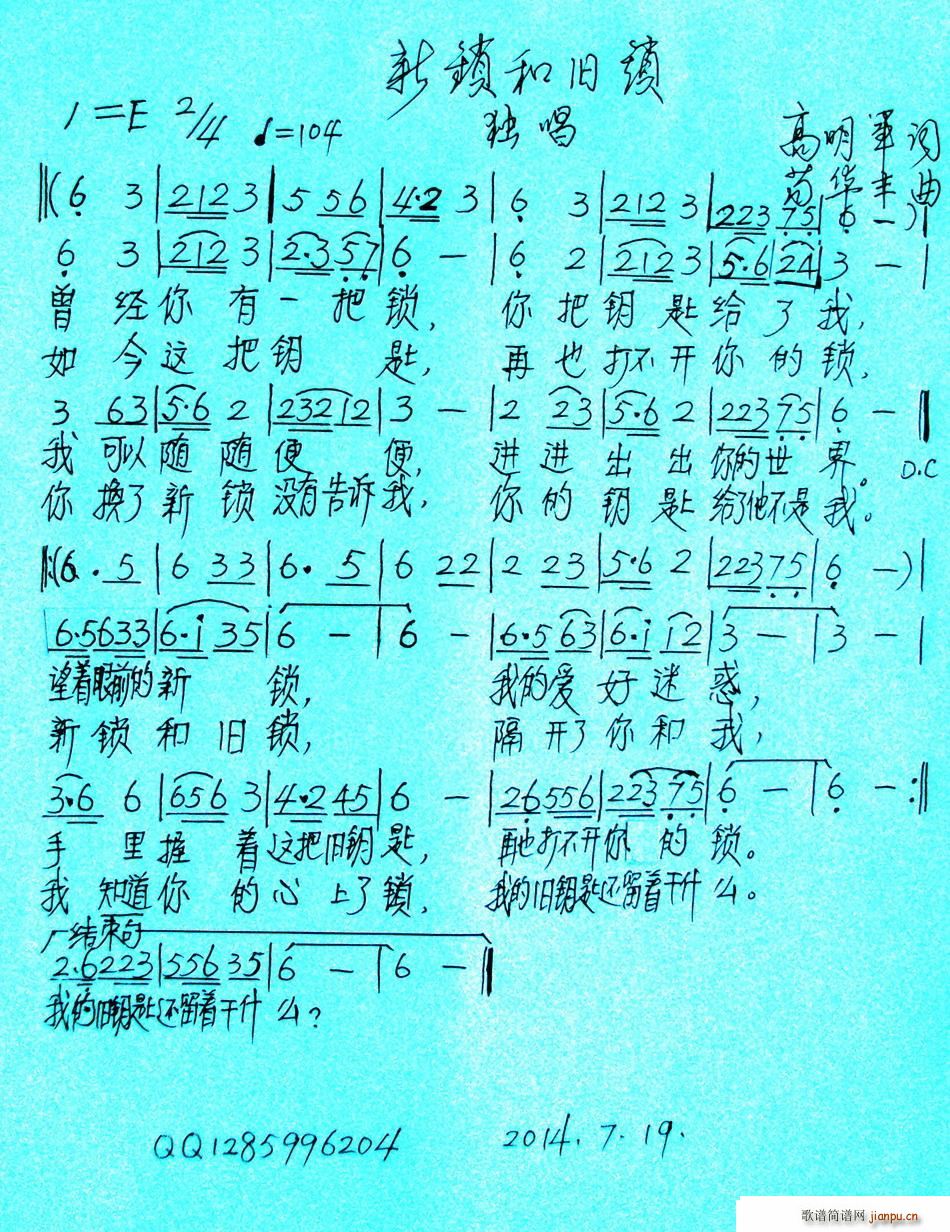 新鎖和旧鎖
1=E 2/4 ♩=104 独唱 高明軍词
苟华丰曲
‖(6 3|212 3|5 56|4·2 3|6 3|212 3|223 75|6 -)|
6 3|212 3|2·3 57|6 -|6 2|212 3|5·6 24|3 -|
曾经你有一把锁，你把钥匙给了我，
如今这把钥匙，再也打不开你的锁，
3 63|5·6 2|23212|3 -|2 23|5·6 2|223 75|6 -‖
我可以随随便便，进进出出你的世界。D.C
你换了新锁没有告诉我，你的钥匙给了他不是我。
‖:(6· 5|6 33|6· 5|6 22|2 23|5·6 2|223 75|6 -)|
6·5633|6·i 35|6 -|6 -|6·5 63|6·i i2|3 -|3 -|
望着眼前的新锁，我的爱好迷惑，
新锁和旧锁，隔开了你和我，
3·6 6|656 3|4·2 45|6 -|26 556|223 75|6 -|6 -:‖
手里握着这把旧钥匙，再也打不开你的锁。
我知道你的心上了锁，我的旧钥匙还留着干什么。
结束句
2·6223|556 35|6 -|6 -‖
我的旧钥匙还留着干什么？
QQ1285996204 2014.7.19.
歌谱简谱网 jianpu.cn